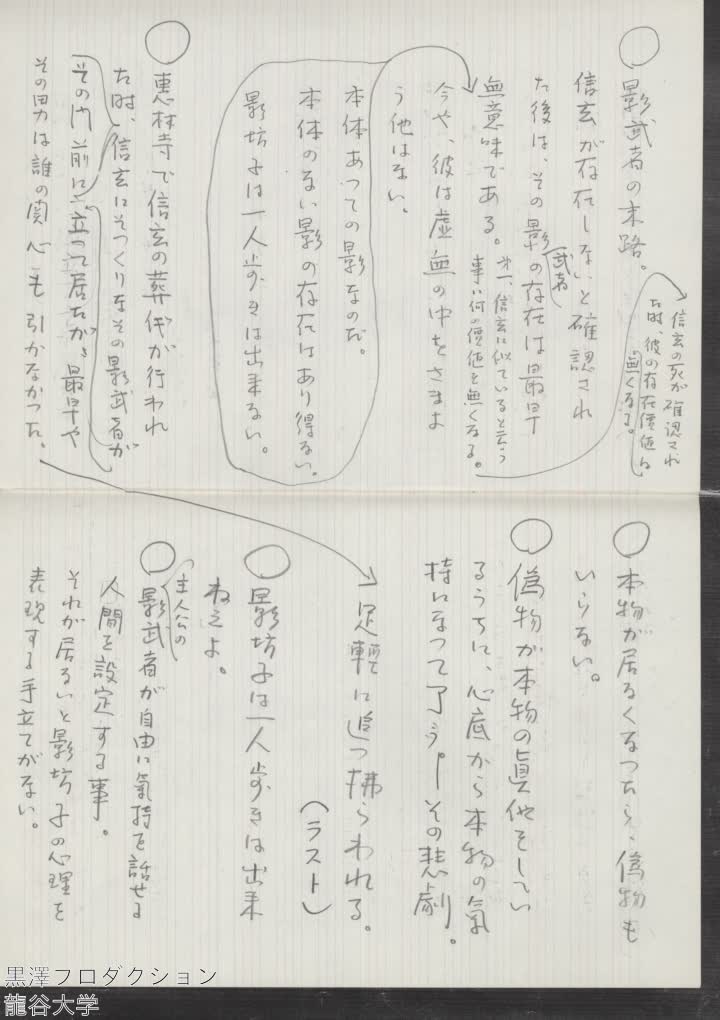 ○影武者の末路。
信玄が存在しないと確認され
た後は、その影武者の存在は最早
無意味である。
才一、信玄に似ていると云う
事に何の價値も無くなる。
信玄の死が確認され
た時、彼の存在價値は
無くなる。
今や、彼は虚無の中をさまよ
う他はない。
本体あつての影なのだ。
本体のない影の存在はあり得ない。
影坊子は一人歩きは出来ない。
○惠林寺で信玄の葬儀が行われ
た時、信玄にそつくりなその影武者が
その門前に立つて居たが、最早や
その男は誰の関心も引かなかつた。
足軽に追つ拂らわれる。
(ラスト)
○本物が居なくなつたら、偽物も
いらない。
○偽物が本物の真似をしてい
るうちに、心底から本物の氣
持になつて了う──その悲劇。
○影坊子は一人歩きは出来
ねえよ。
○主人公の
影武者が自由に氣持を話せる
人間を設定する事。
それが居ないと影坊子の心理を
表現する手立てがない。
黒澤プロダクション
龍谷大学